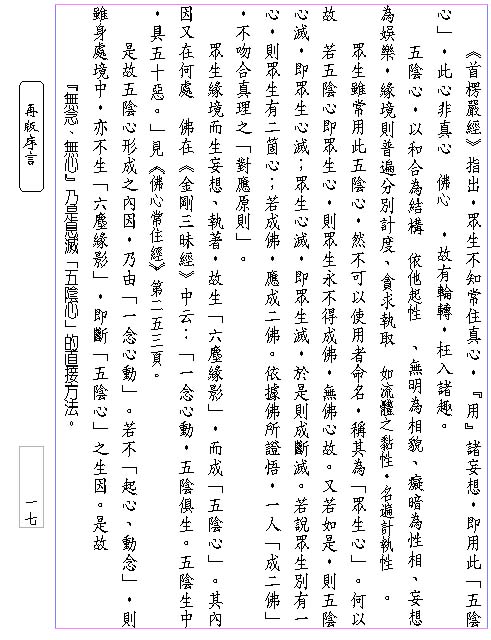 《首楞嚴經》指出，眾生不知常住真心，『用』諸妄想，即用此「五陰
心」，此心非真心　佛心　，故有輪轉，枉入諸趣。
五陰心，以和合為結構　依他起性　、無明為相貌、癡暗為性相、妄想
為娛樂，緣境則普遍分別計度、貪求執取　如流體之黏性，名遍計執性　。
眾生雖常用此五陰心，然不可以使用者命名，稱其為「眾生心」。何以
故　若五陰心即眾生心，則眾生永不得成佛，無佛心故。又若如是，則五陰
心滅，即眾生心滅；眾生心滅，即眾生滅，於是則成斷滅。若說眾生別有一
心，則眾生有二箇心；若成佛，應成二佛。依據佛所證悟，一人「成二佛」
，不吻合真理之「對應原則」。
眾生緣境而生妄想、執著，故生「六塵緣影」，而成「五陰心」。其內
因又在何處　佛在《金剛三昧經》中云：「一念心動，五陰俱生。五陰生中
，具五十惡。」見《佛心常住經》第二五三頁。
是故五陰心形成之內因，乃由「一念心動」。若不「起心、動念」，則
雖身處境中，亦不生「六塵緣影」，即斷「五陰心」之生因。是故
『無念、無心』乃是息滅「五陰心」的直接方法。
再版序言
一七